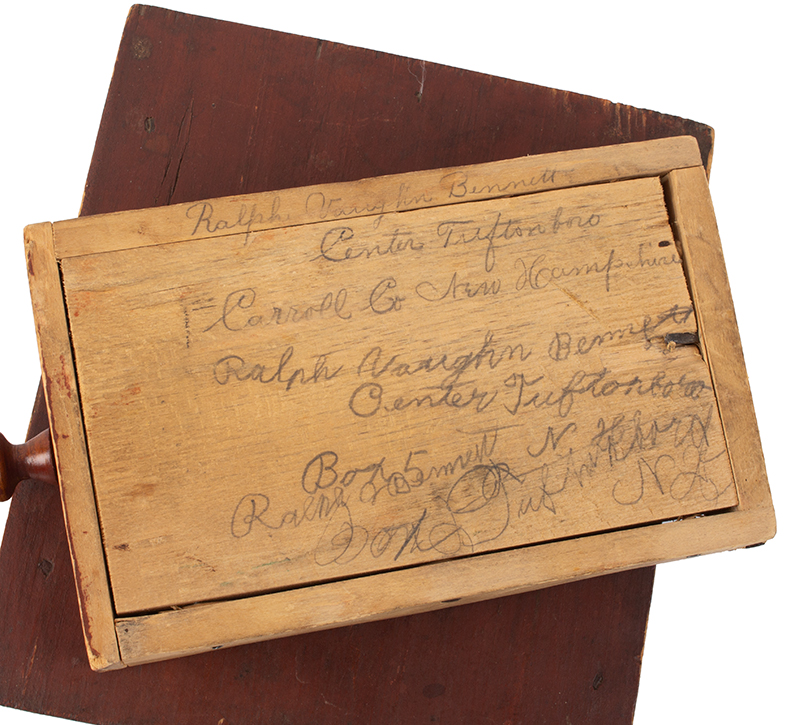 Ralph Vaughn Bennett
Center Tuftonboro
Carroll Co New Hampshire
Ralph Vaughn Bennett
Center Tuftonboro
Box 5 N. H
Ralph V Bennett
Box Tuf
N H